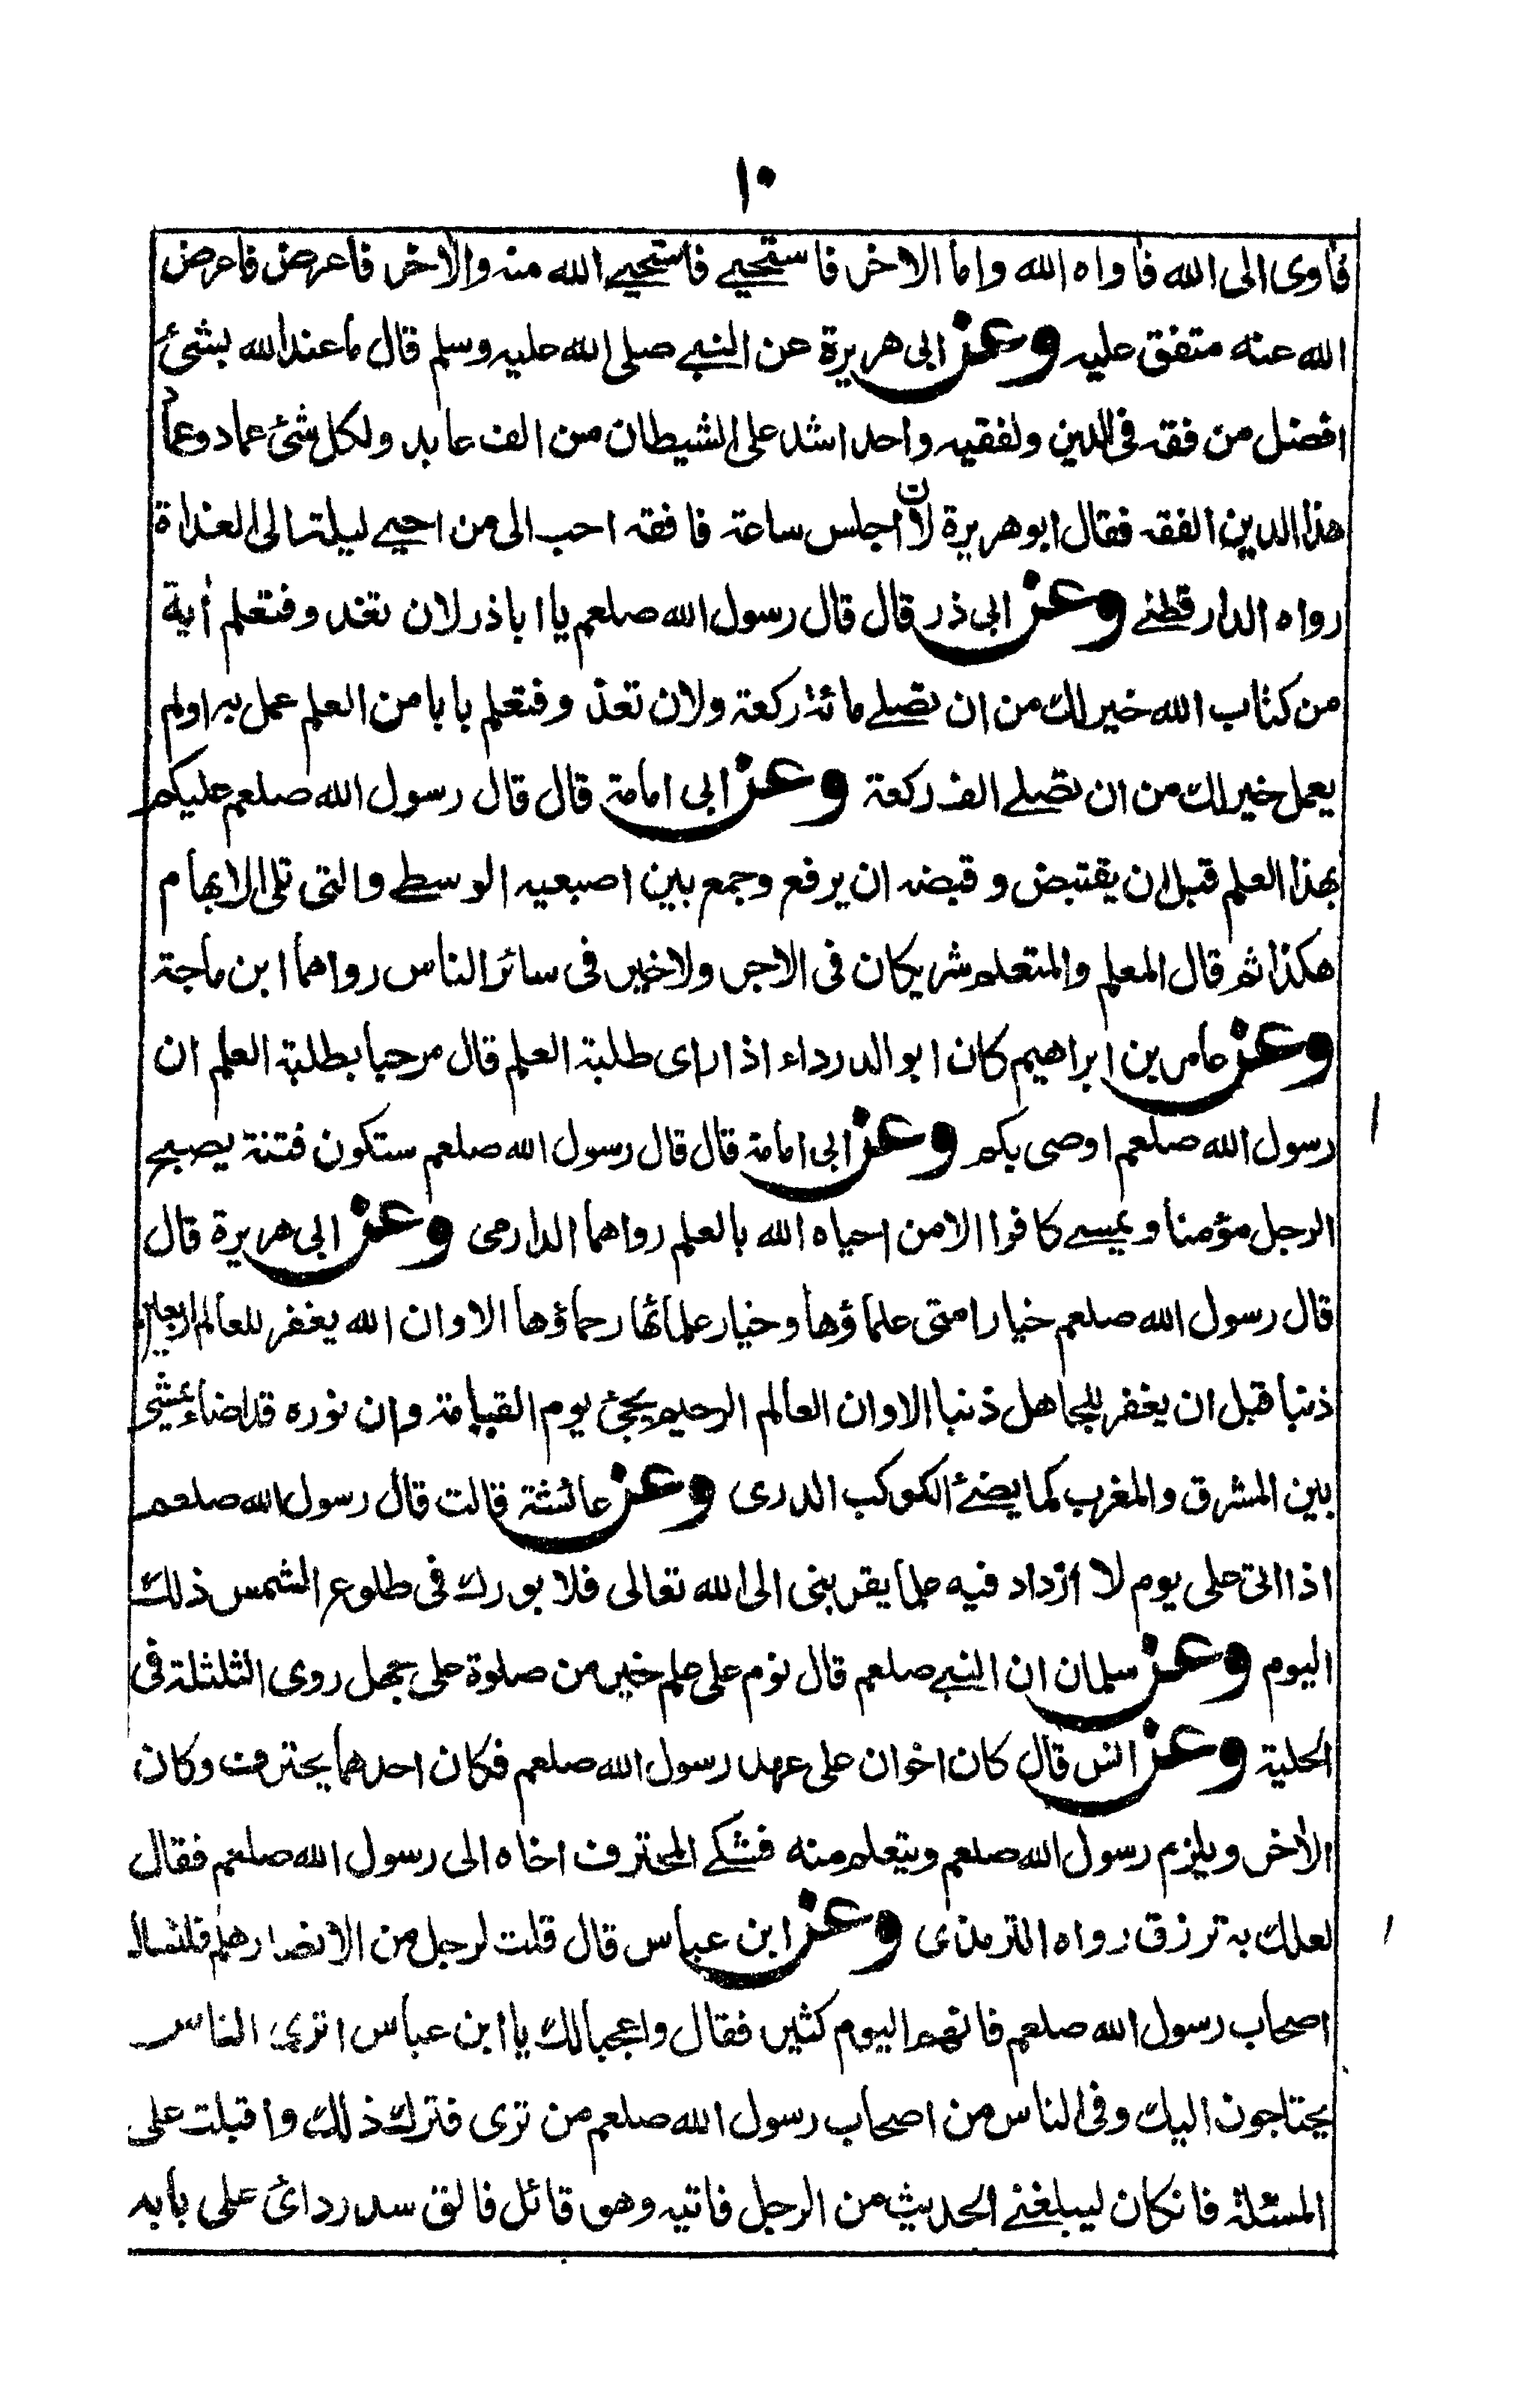 ١٠
فاوى الى الله فاواه الله واما الاخر فاستحيے فاستحيے الله منه والاخر فاعرض فاعرض
الله عنه متفق عليه وعن ابى هريرة عن النبے صلى الله عليه وسلم قال ما عند الله بشئ
افضل من فقه فى الدين ولفقيه واحد اشد على الشيطان من الف عابد ولكل شئ عماد وعما
هذا الدين الفقه فقال ابو هريرة لان اجلس ساعة فافقه احب الى من احيے ليلة الى الغداة
رواه الدارقطنے وعن ابى ذر قال قال رسول الله صلعم يا اباذر لان تغد وفتعلم أية
من كتاب الله خير لك من ان تصلے مائة ركعة ولان تغد وفتعلم بابا من العلم عمل به اولم
يعمل خير لك من ان تصلے الف ركعة وعن ابى امامة قال قال رسول الله صلعم عليكم
بهذا العلم قبل ان يقتبض وقبضه ان يرفع وجمع بين اصبعيه الوسطے والتى تلى الابهام
هكذا ثم قال المعلم والمتعلم شريكان فى الاجر ولا خير فى سائر الناس رواهما ابن ماجة
وعن عامر بن ابراهيم كان ابو الدرداء اذا راى طلبة العلم قال مرحبا بطلبة العلم ان
رسول الله صلعم اوصى بكم وعن ابى امامة قال قال رسول الله صلعم ستكون فتنة يصبح
الرجل مؤمنا ويمسے كافرا الا من احياه الله بالعلم رواهما الدارمى وعن ابى هريرة قال
قال رسول الله صلعم خيار امتى علماؤها وخيار علمائها رحماؤها الا وان الله يغفر للعالم اربعين
ذنبا قبل ان يغفر للجاهل ذنبا الا وان العالم الرحيم يجئ يوم القيامة وان نوره قد اضاء يمشى
بين المشرق والمغرب كما يضئ الكوكب الدرى وعن عائشة قالت قال رسول الله صلعم
اذا اتى على يوم لا ازداد فيه علما يقربنى الى الله تعالى فلا بورك فى طلوع الشمس ذلك
اليوم وعن سلمان ان النبے صلعم قال نوم على علم خير من صلوة على جهل روى الثلثلة فى
الحلية وعن انس قال كان اخوان على عهد رسول الله صلعم فكان احدهما يحترف وكان
الأخر ويلزم رسول الله صلعم ويتعلم منه فشكے المحترف اخاه الى رسول الله صلعم فقال
لعلك به ترزق رواه الترمذى وعن ابن عباس قال قلت لرجل من الانصار هلم فلنسال
اصحاب رسول الله صلعم فانهم اليوم كثير فقال واعجبا لك يا ابن عباس اترى الناس
يحتاجون اليك وفى الناس من اصحاب رسول الله صلعم من ترى فترك ذلك واقبلت على
المسئلة فان كان ليبلغنے الحديث من الرجل فاتيه وهو قائل فالق سدر ردائ على بابه